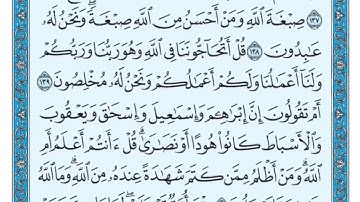 ١٣٧ صِبْغَةَ ٱللَّهِ وَمَنْ أَحْسَنُ مِنَ ٱللَّهِ صِبْغَةً وَنَحْنُ لَهُۥ
عَٰبِدُونَ ١٣٨ قُلْ أَتُحَآجُّونَنَا فِى ٱللَّهِ وَهُوَ رَبُّنَا وَرَبُّكُمْ
وَلَنَآ أَعْمَٰلُنَا وَلَكُمْ أَعْمَٰلُكُمْ وَنَحْنُ لَهُۥ مُخْلِصُونَ ١٣٩
أَمْ تَقُولُونَ إِنَّ إِبْرَٰهِـۧمَ وَإِسْمَٰعِيلَ وَإِسْحَٰقَ وَيَعْقُوبَ
وَٱلْأَسْبَاطَ كَانُوا۟ هُودًا أَوْ نَصَٰرَىٰ ۗ قُلْ ءَأَنتُمْ أَعْلَمُ أَمِ
ٱللَّهُ ۗ وَمَنْ أَظْلَمُ مِمَّن كَتَمَ شَهَٰدَةً عِندَهُۥ مِنَ ٱللَّهِ ۗ وَمَا ٱللَّهُ